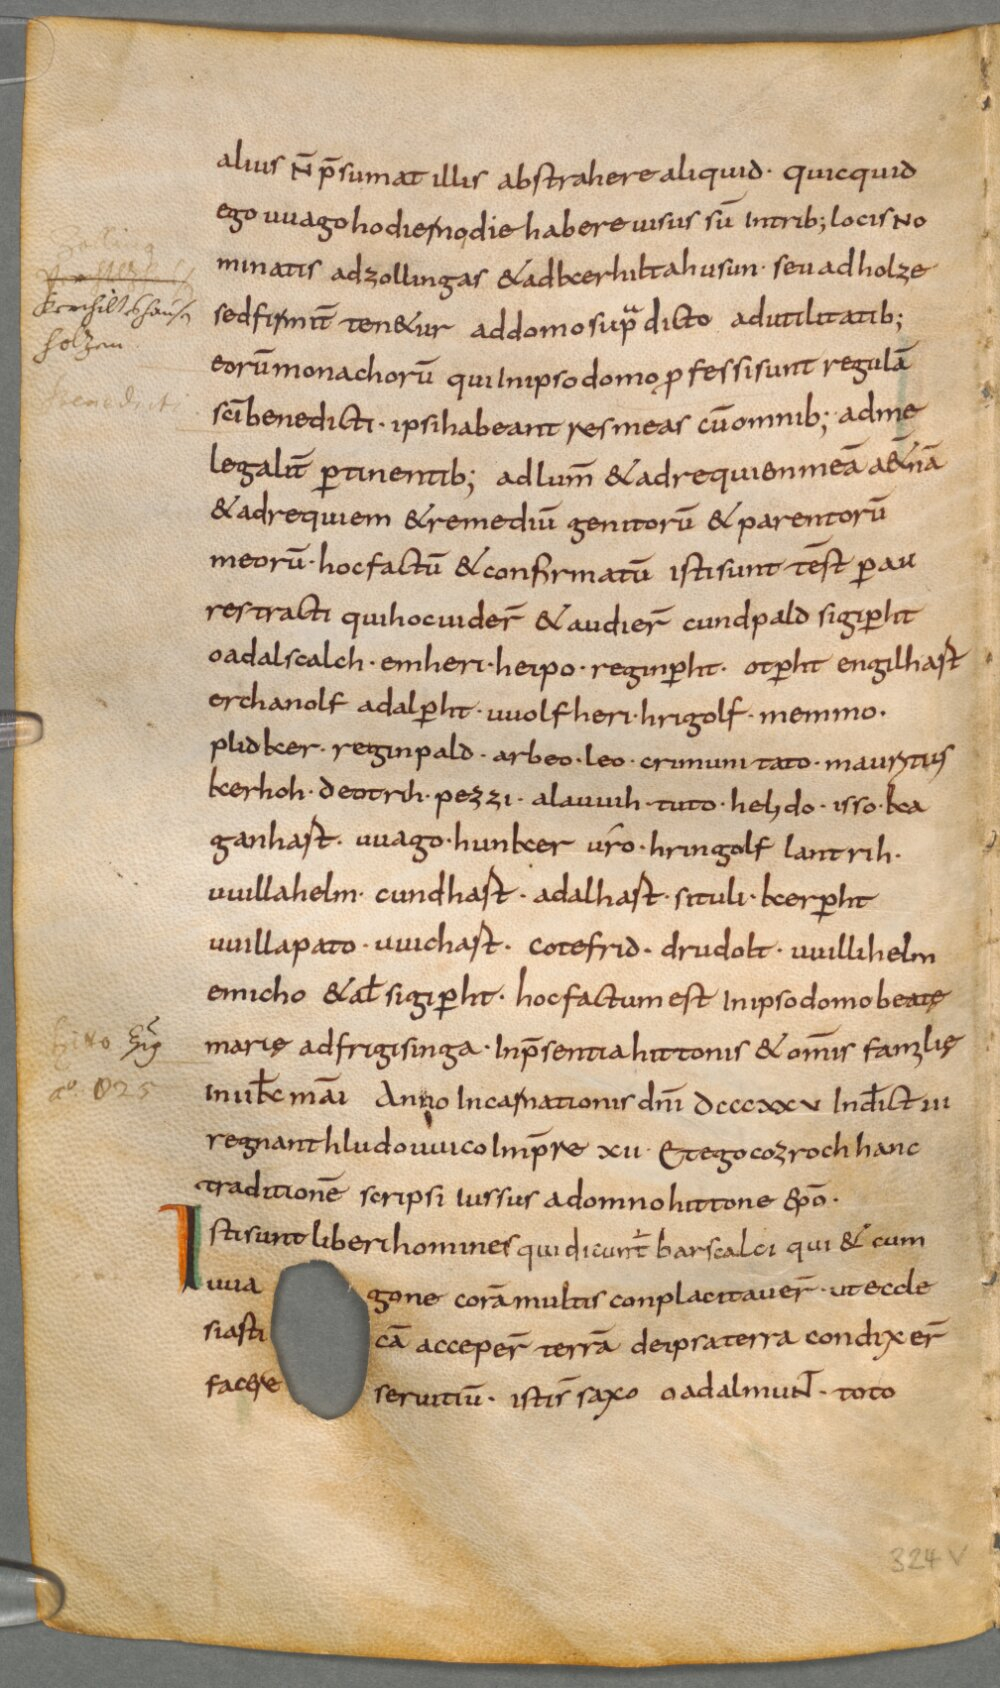 alius N̄ p̄sumat illis abstrahere aliquid · quicquid
ego uuago hodierno die habere uisus sū In trib; locis No
minatis ad zollingas & ad kerhiltahusun · seu ad holze
sed firmit̄ ten&ur ad domo sup̄a dicto ad utilitatib;
eorū monachorū qui In ipso domo ꝓfessi sunt regulā
sc̄i benedicti · ipsi habeant res meas cū omnib; ad me
legalit̄ ꝑtinentib; ad lum̄ & ad requien meā a&̄nā
& ad requiem & remediū genitorū & parentorū
meorū · hoc factū & confirmatū isti sunt tēst ꝑ au
res tracti qui hoc uider̄ & audier̄ cundpald sigiꝑht
oadalscalch · emheri · heipo · reginꝑht · otꝑht engilhast
erchanolf adalꝑht · uuolfheri · hrigolf · memmo ·
plidker · reginpald · arbeo · leo · crimuni tato · mauritius
kerhoh · deotrih · pezzi · alauuih · tuto · helido · isso · ka
ganhast · uuago · hunker ur̄o · hringolf lantrih ·
uuillahelm · cundhast · adalhast · situli · kerꝑht
uuillapato · uuichast · cotefrid · drudolt · uuillihelm
emicho & al̄ sigiꝑht · hoc factum est In ipso domo beatę
marię ad frigisinga · In p̄sentia hittonis & om̄is familię
In uii k̄ māi Anno Incarnationis dn̄i dcccxxv Indict̄ iii
regnant hludouuico Imp̄re xii · Et ego cozroh hanc
traditionē scripsi Iussus a domno hittone ep̄o ·
Isti sunt liberi homines qui dicunt̄ barscalci qui & cum
uua gone corā multis conplacitauer̄ · ut eccle
siasti cā acceper̄ terrā de ipsa terra condixer̄
facere seruitiū · isti s̄ saxo oadalmuNT · toto
kerchiltshausen
holzen
Benedict
hitto Ep̄s
aº 825
324 v